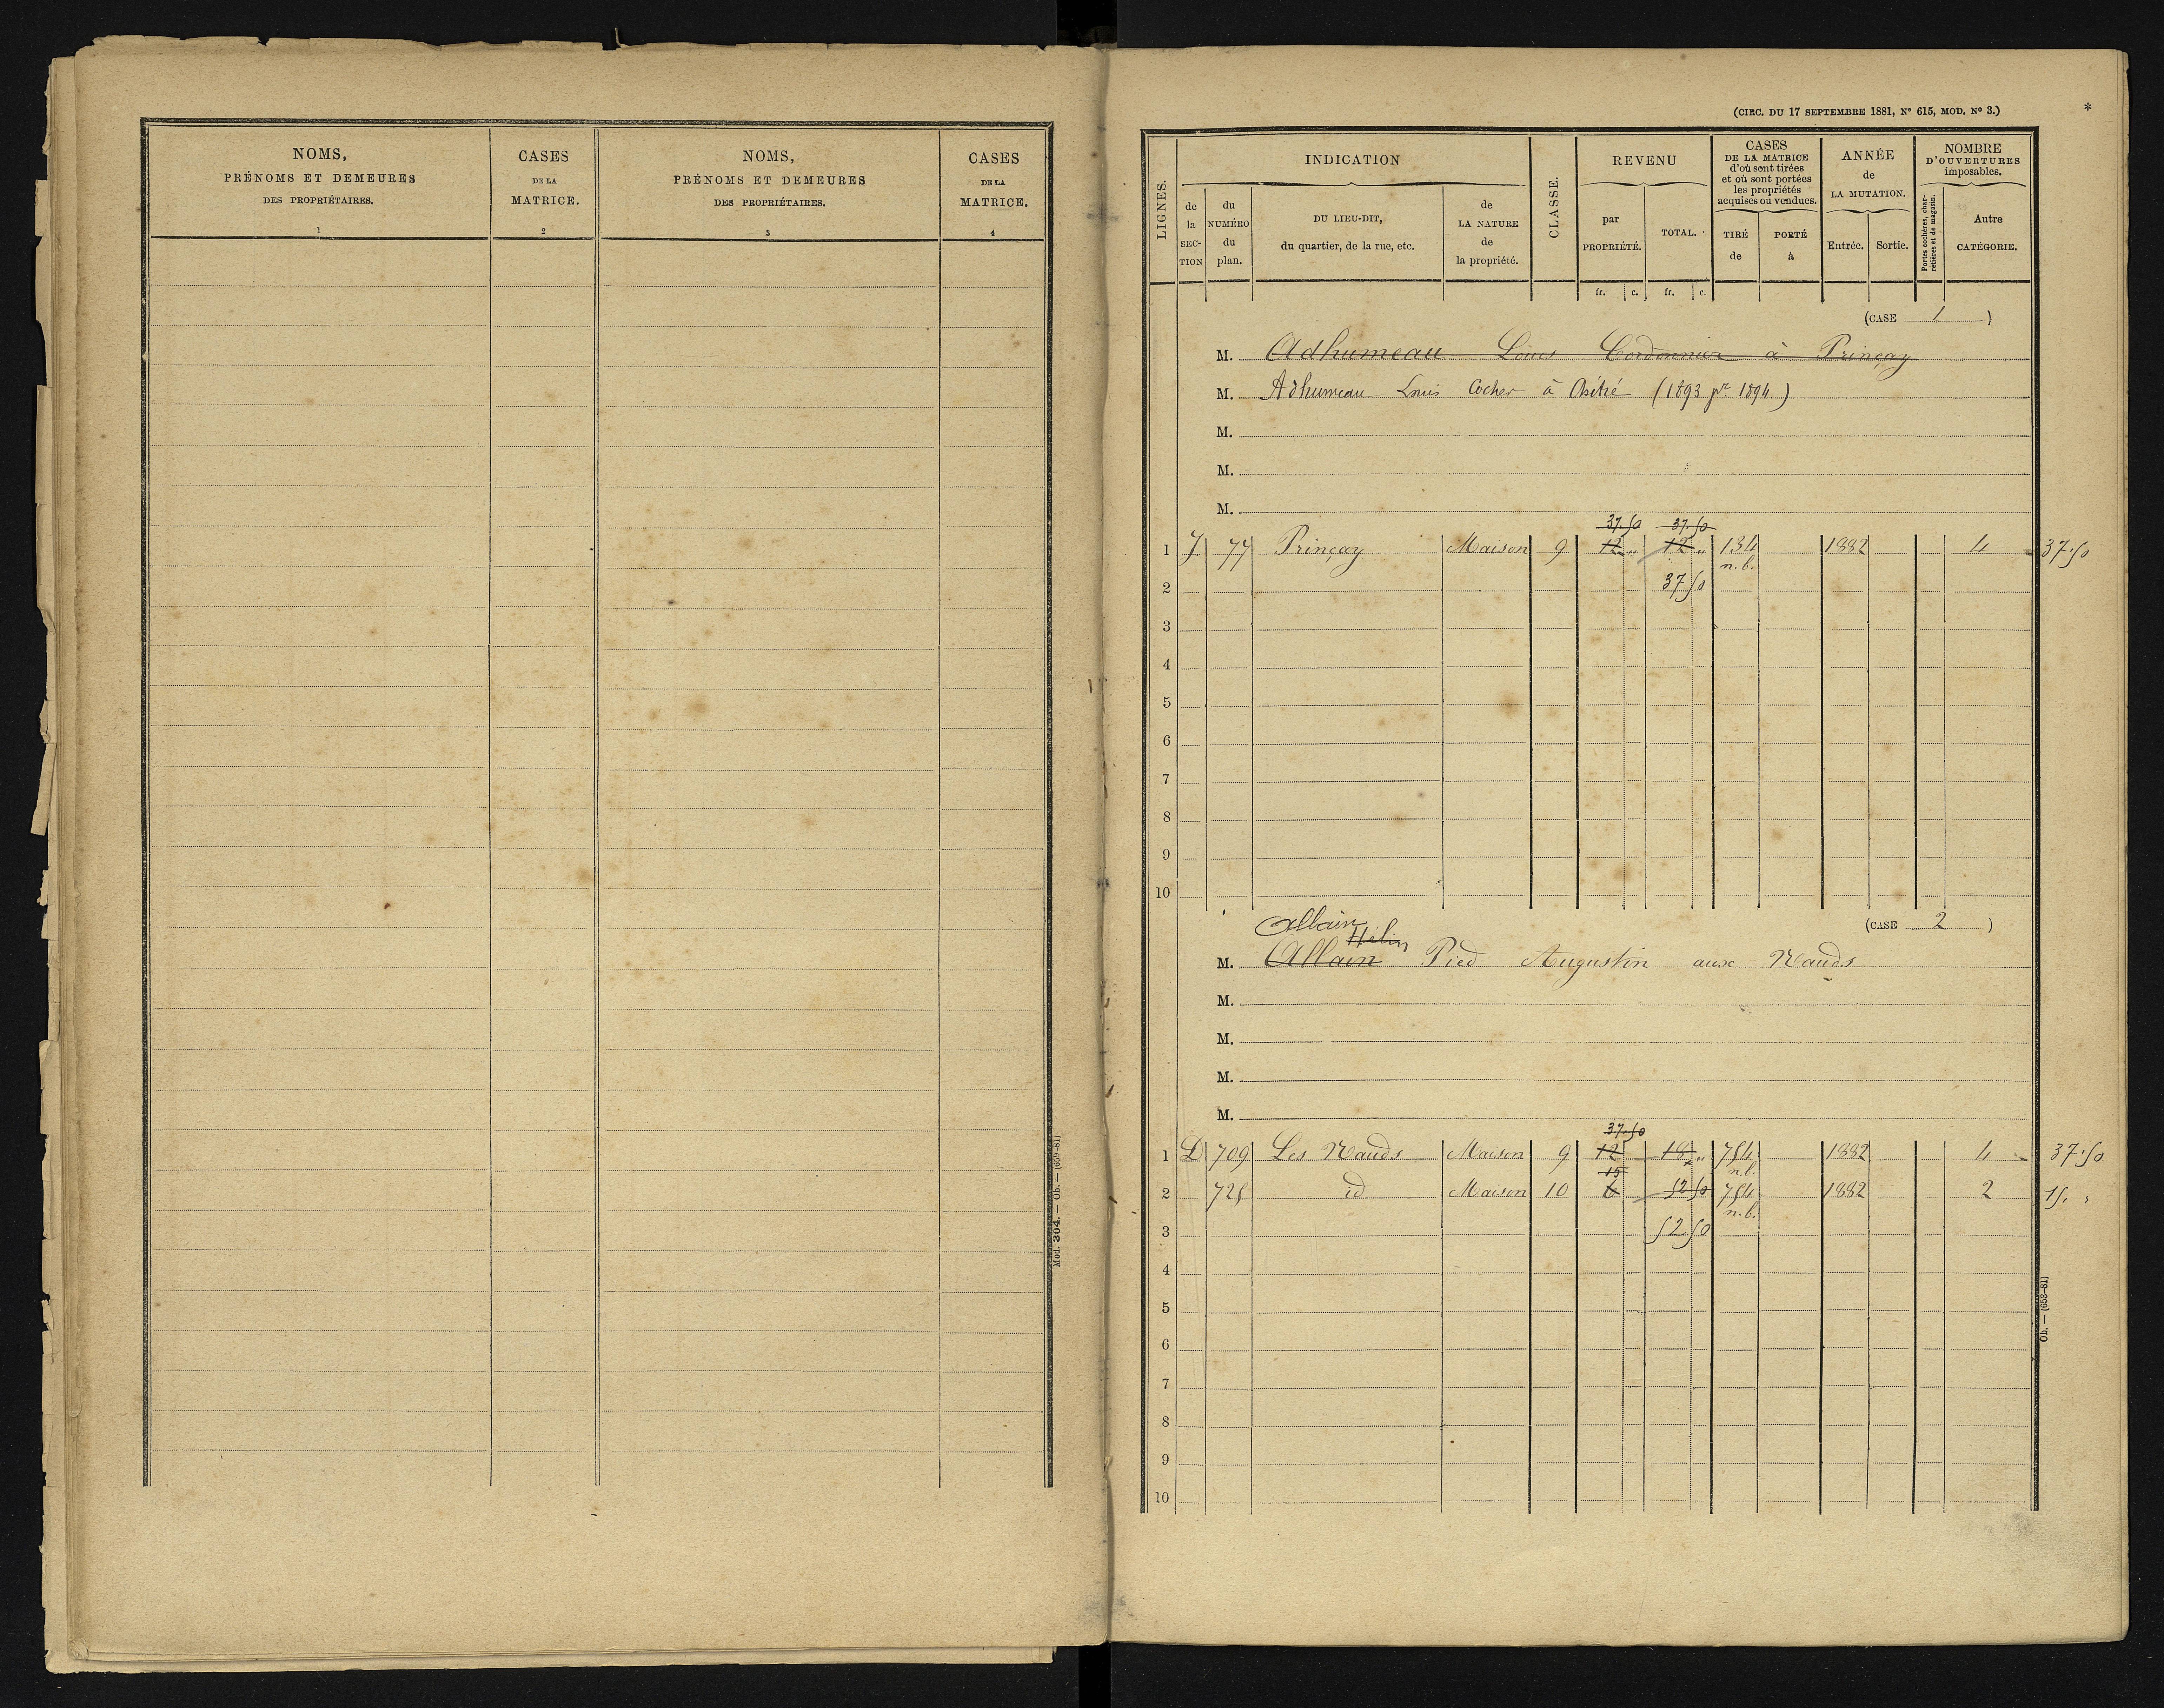 NOMS,
PRÉNOMS ET DEMEURES
DES PROPRIÉTAIRES.
1
CASES
DE LA
MATRICE.
2
NOMS,
PRÉNOMS ET DEMEURES
DES PROPRIÉTAIRES.
3
CASES
DE LA
MATRICE.
4
Mod. 304. — Ob. — (659-81)
(CIRC. DU 17 SEPTEMBRE 1881, N° 615, MOD. N° 3.)
*
LIGNES.
INDICATION
de la SECTION
du NUMÉRO du plan.
DU LIEU-DIT,
du quartier, de la rue, etc.
de LA NATURE de la propriété.
CLASSE.
REVENU
par PROPRIÉTÉ.
TOTAL.
CASES
DE LA MATRICE
d'où sont tirées
et où sont portées
les propriétés
acquises ou vendues.
TIRÉ de
PORTÉ à
ANNÉE
de
LA MUTATION.
Entrée.
Sortie.
NOMBRE
D'OUVERTURES
imposables.
Portes cochères, charretières et de magasin.
Autre CATÉGORIE.
fr. c. fr. c.
(CASE 1)
M. Adhumeau Louis Cordonnier à Prinçay
M. Adhumeau Louis Cocher à Chitré (1893 pr 1894.)
M.
M.
M.
37.50 37.50
1 J. 77 Prinçay Maison 9 12 " 12 " 134 1882 4 37.50
n.b.
2 37 50
3
4
5
6
7
8
9
10
Allain
(CASE 2)
Hélin
M. Allain Pied Augustin aux Nauds
M.
M.
M.
M.
37.50
1 D 709 Les Nauds Maison 9 12 18 " 754 1882 4 37.50
15 n.b.
2 725 id Maison 10 6 52 50 754 1882 2 15. "
n.b.
3 52 50
4
5
6
7
8
9
10
Ob. — (653-81)